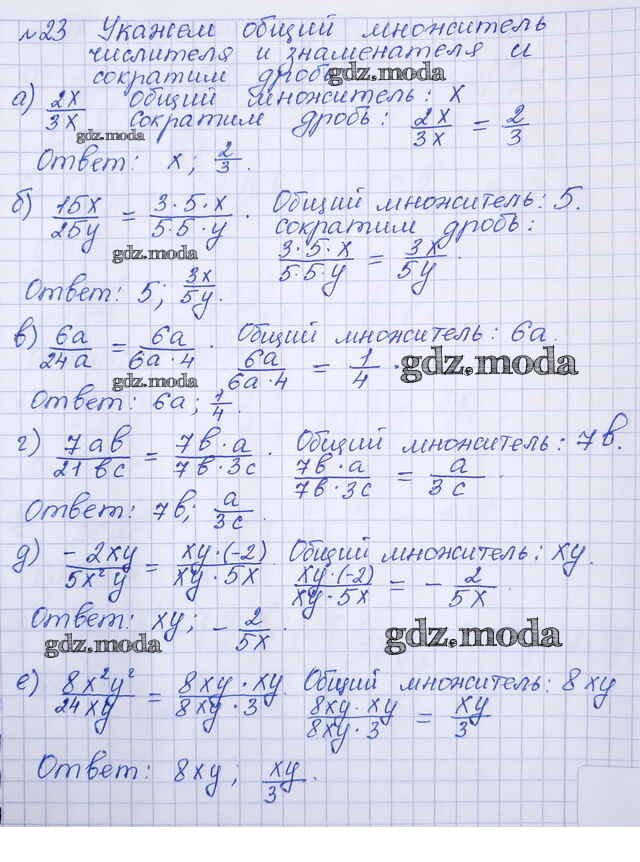 №23 Укажем общий множитель
числителя и знаменателя и
сократим дробь gdz.moda
а) 2x/3x Общий множитель: x
сократим дробь: 2x/3x = 2/3
gdz.moda
Ответ: x; 2/3.
б) 15x/25y = 3·5·x/5·5·y. Общий множитель: 5.
сократим дробь:
gdz.moda 3·5·x/5·5·y = 3x/5y.
Ответ: 5; 3x/5y.
в) 6a/24a = 6a/6a·4. Общий множитель: 6a.
6a/6a·4 = 1/4. gdz.moda
gdz.moda
Ответ: 6a; 1/4.
г) 7ab/21bc = 7b·a/7b·3c. Общий множитель: 7b.
7b·a/7b·3c = a/3c.
Ответ: 7b; a/3c.
д) -2xy/5x²y = xy·(-2)/xy·5x. Общий множитель: xy.
xy·(-2)/xy·5x = -2/5x.
Ответ: xy; -2/5x.
gdz.moda gdz.moda
е) 8x²y²/24xy = 8xy·xy/8xy·3. Общий множитель: 8xy
8xy·xy/8xy·3 = xy/3
Ответ: 8xy; xy/3.